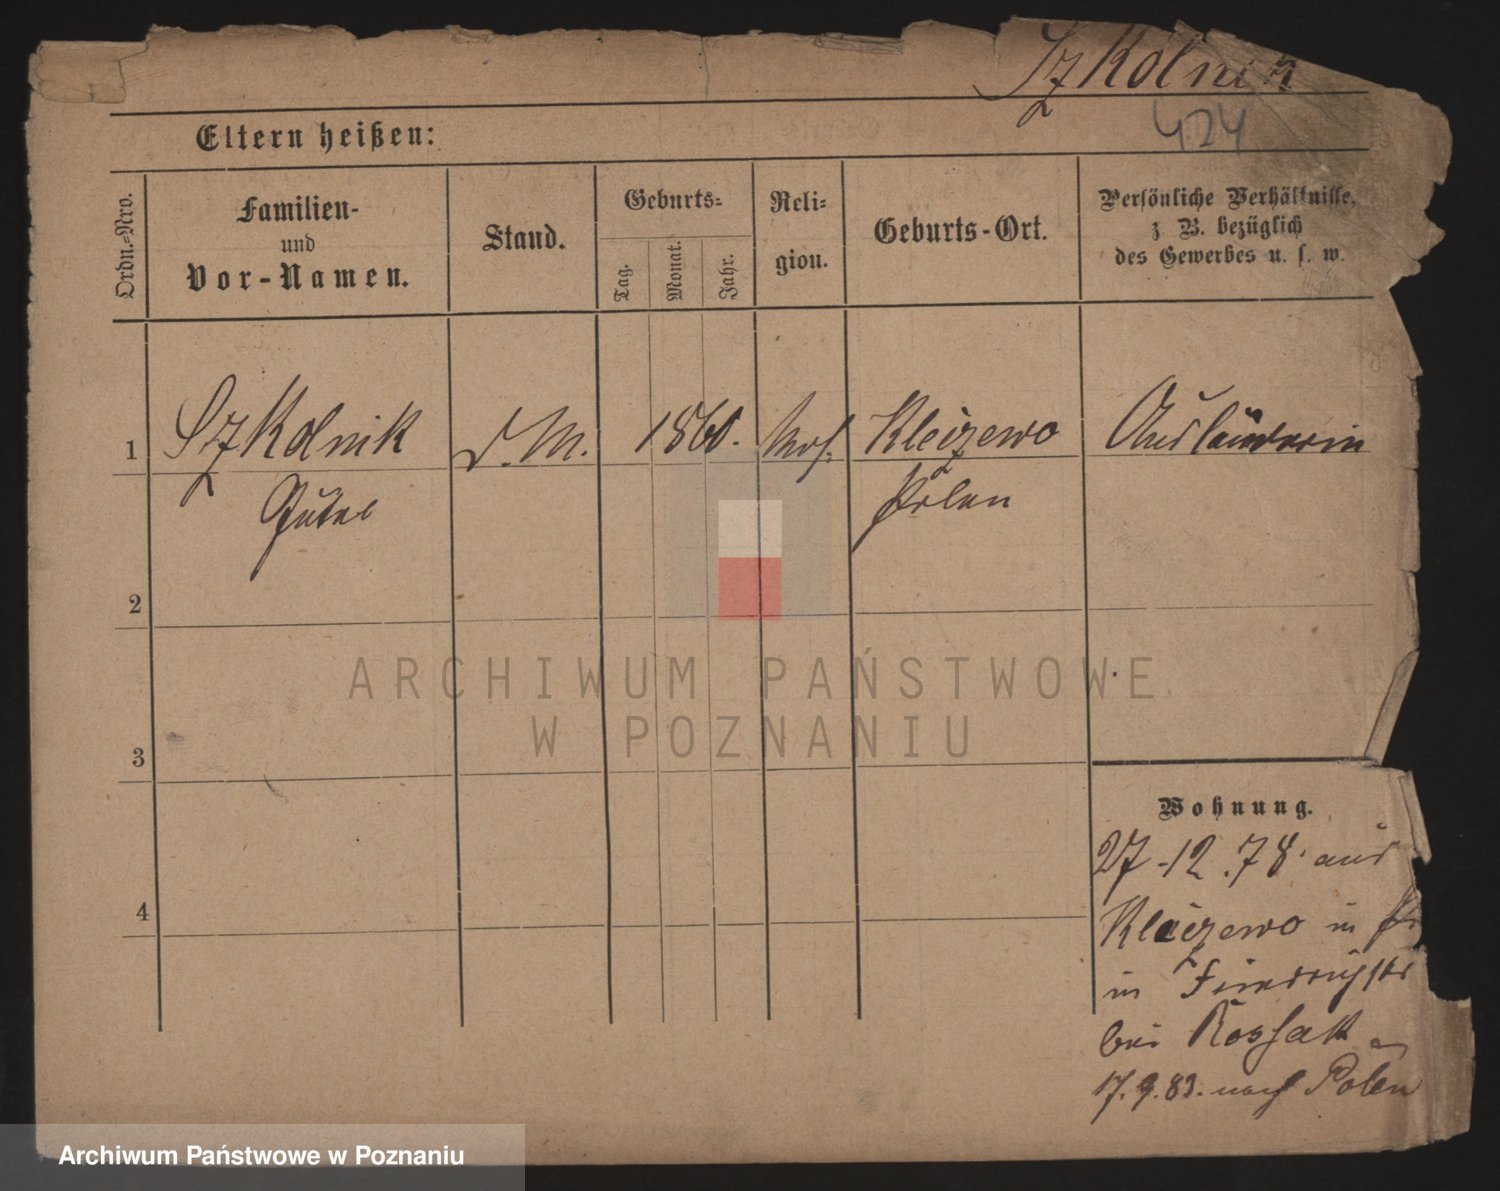 Szkolnik
424
Eltern heißen:
Ordn.=Nro.
Familien-
und
Vor-Namen.
Stand.
Geburts=
Tag.
Monat.
Jahr.
Reli=
gion.
Geburts-Ort.
Persönliche Verhältnisse,
z. B. bezüglich
des Gewerbes u. s. w.
1
Szkolnik
d. M.
1860.
mos.
Kleczewo
Ausländerin
Polen
2
3
4
Wohnung.
27-12.78. aus
Kleczewo in
in
bei Kossak
17.9.83. nach Polen
ARCHIWUM PAŃSTWOWE
W POZNANIU
Archiwum Państwowe w Poznaniu